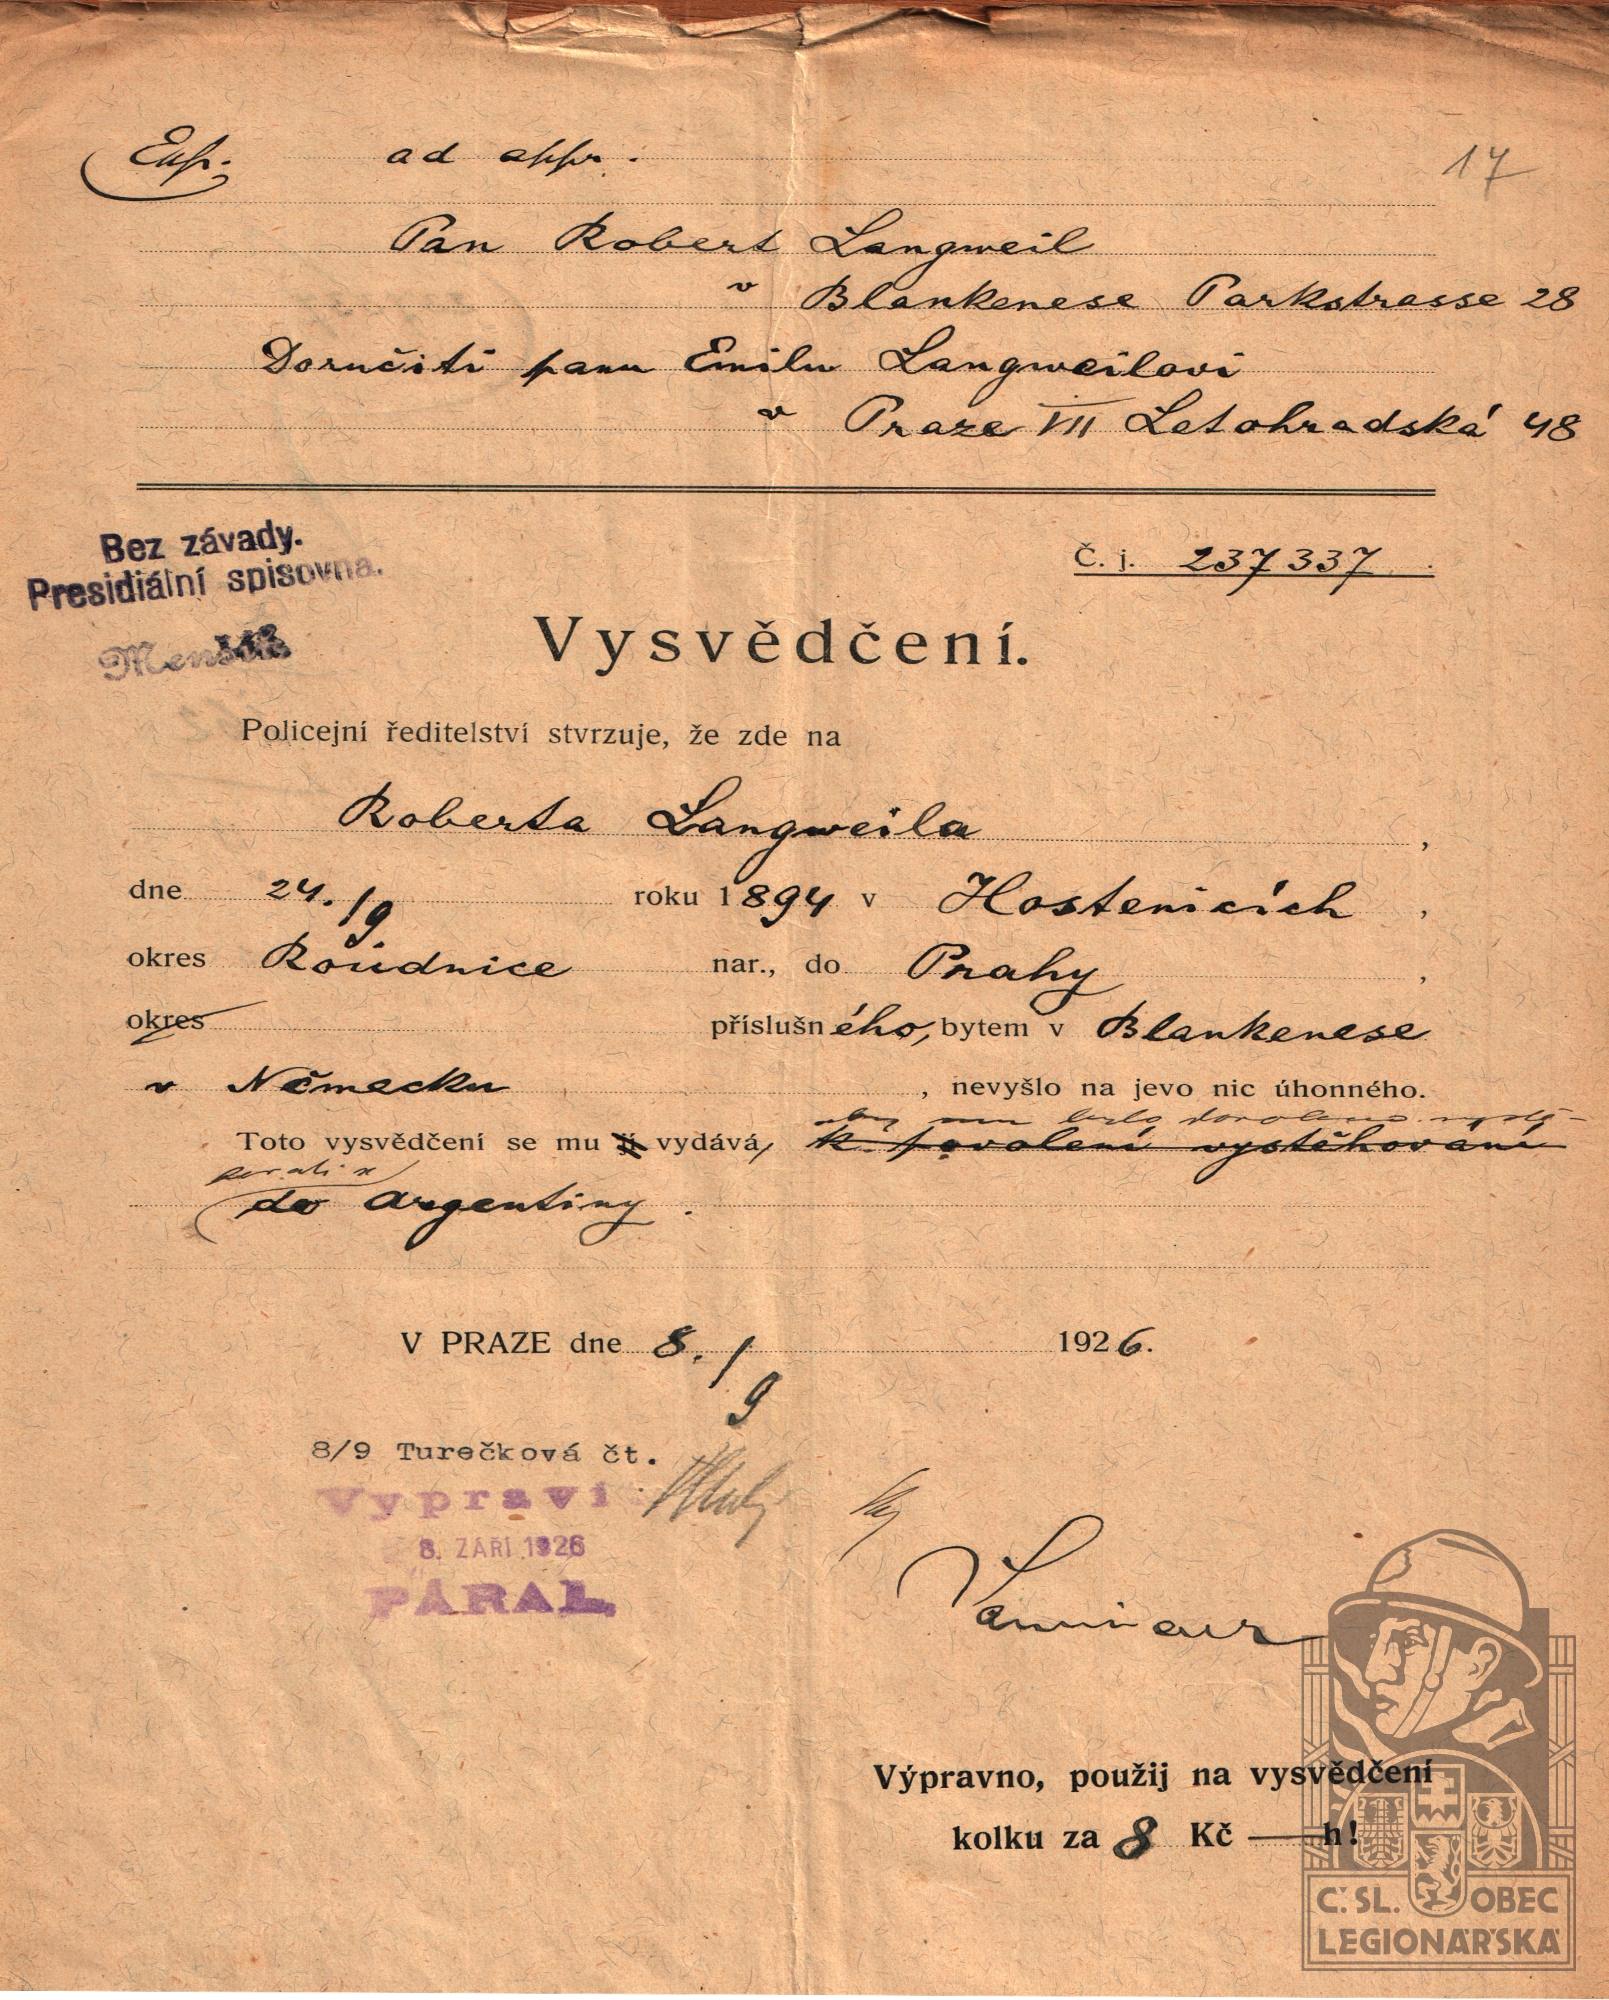 Exp. ad appr.
17
Pan Robert Langweil
v Blankenese Parkstrasse 28
Doručiti panu Emilu Langweilovi
v Praze VII Letohradská 48
Bez závady.
Presidiální spisovna.
Č. j. 237337
Vysvědčení.
Policejní ředitelství stvrzuje, že zde na
Roberta Langweila,
dne 24./9 roku 1894 v Hostenicích,
okres Roudnice nar., do Prahy,
okres příslušného, bytem v Blankenese
v Německu, nevyšlo na jevo nic úhonného.
aby mu bylo dovoleno vystě-
Toto vysvědčení se mu jí vydává, k povolení vystěhování
hovati se
do Argentiny.
V PRAZE dne 8./9 1926.
8/9 Turečková čt.
Vypraví
8. ZÁŘÍ 1926
PÁRAL
Výpravno, použij na vysvědčení
kolku za 8 Kč — h!
Č. SL. OBEC
LEGIONÁŘSKÁ